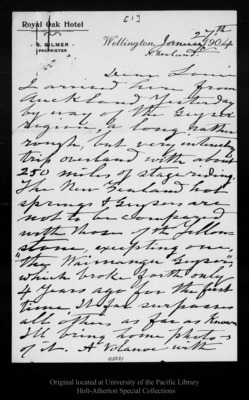 [1]
Royal Oak Hotel
S. GILMER
PROPRIETOR
27th
Wellington, January 1904
N. Zealand
Dear
I arrived here from
Auckland yesterday
by way of the Geyser
Region, a long rather
rough, but very interesting
trip overland with about
250 miles of stage riding.
The New Zealand hot
springs & Geysers are
not to be compared
with those of the Yellow
stone, excepting one,
"the Waimangu Geyser,"
which broke forth only
4 years ago for the first
time. It far surpasses
all others as far as known
I'll bring home photos
of it. A Volcano with
Original located at University of the Pacific Library
Holt-Atherton Special Collections